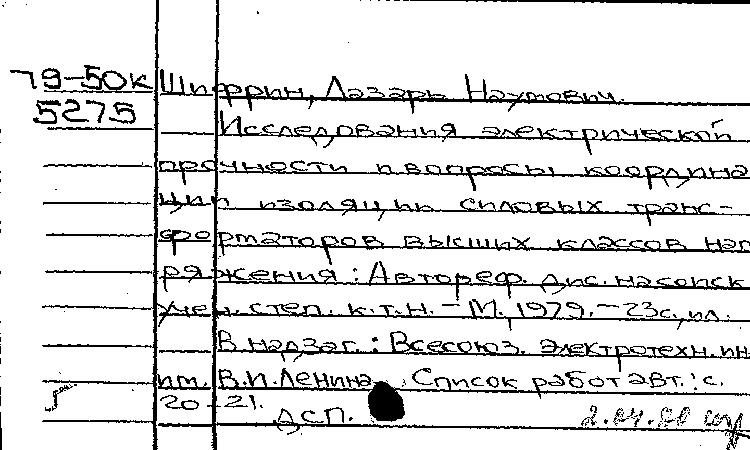 79-50к Шифрин, Лазарь Наумович.
5275 Исследования электрической
прочности и вопросы координа
ции изоляции силовых транс-
форматоров высших классов нап
ряжения : Автореф. дис. на соиск
учен. степ. к.т.н. - М., 1979. - 23с., ил.
В надзаг. : Всесоюз. электротехн. ин
им. В.И. Ленина Список работ авт. : с.
20-21.
ДСП. 2.04.80